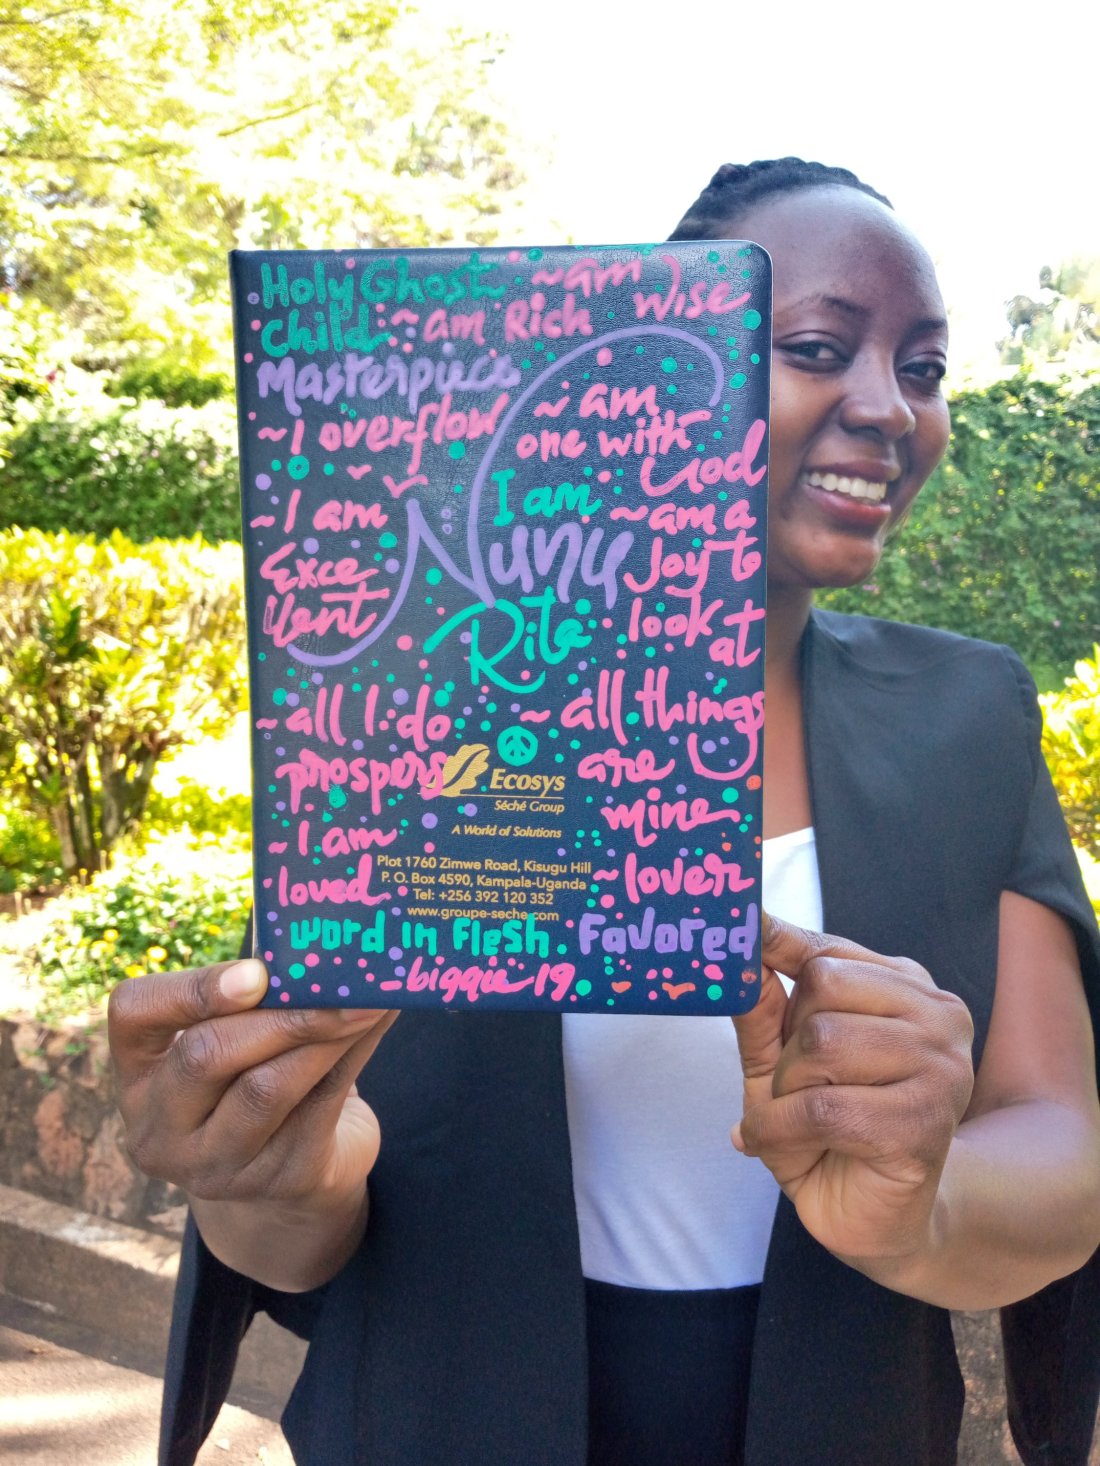 Holy Ghost
Child
~ am Rich
~ am
wise
Masterpiece
~ I overflow
~ am
one with
God
~ I am
Exce
llent
I am
Nunu
Rita
~ am a
Joy to
look
at
~ all I do
prospers
~ all things
are
mine
Ecosys
Séché Group
A World of Solutions
~ I am
loved
Plot 1760 Zimwe Road, Kisugu Hill
P. O. Box 4590, Kampala-Uganda
Tel: +256 392 120 352
www.groupe-seche.com
~ lover
word in flesh.
Favored
- biggie 19.